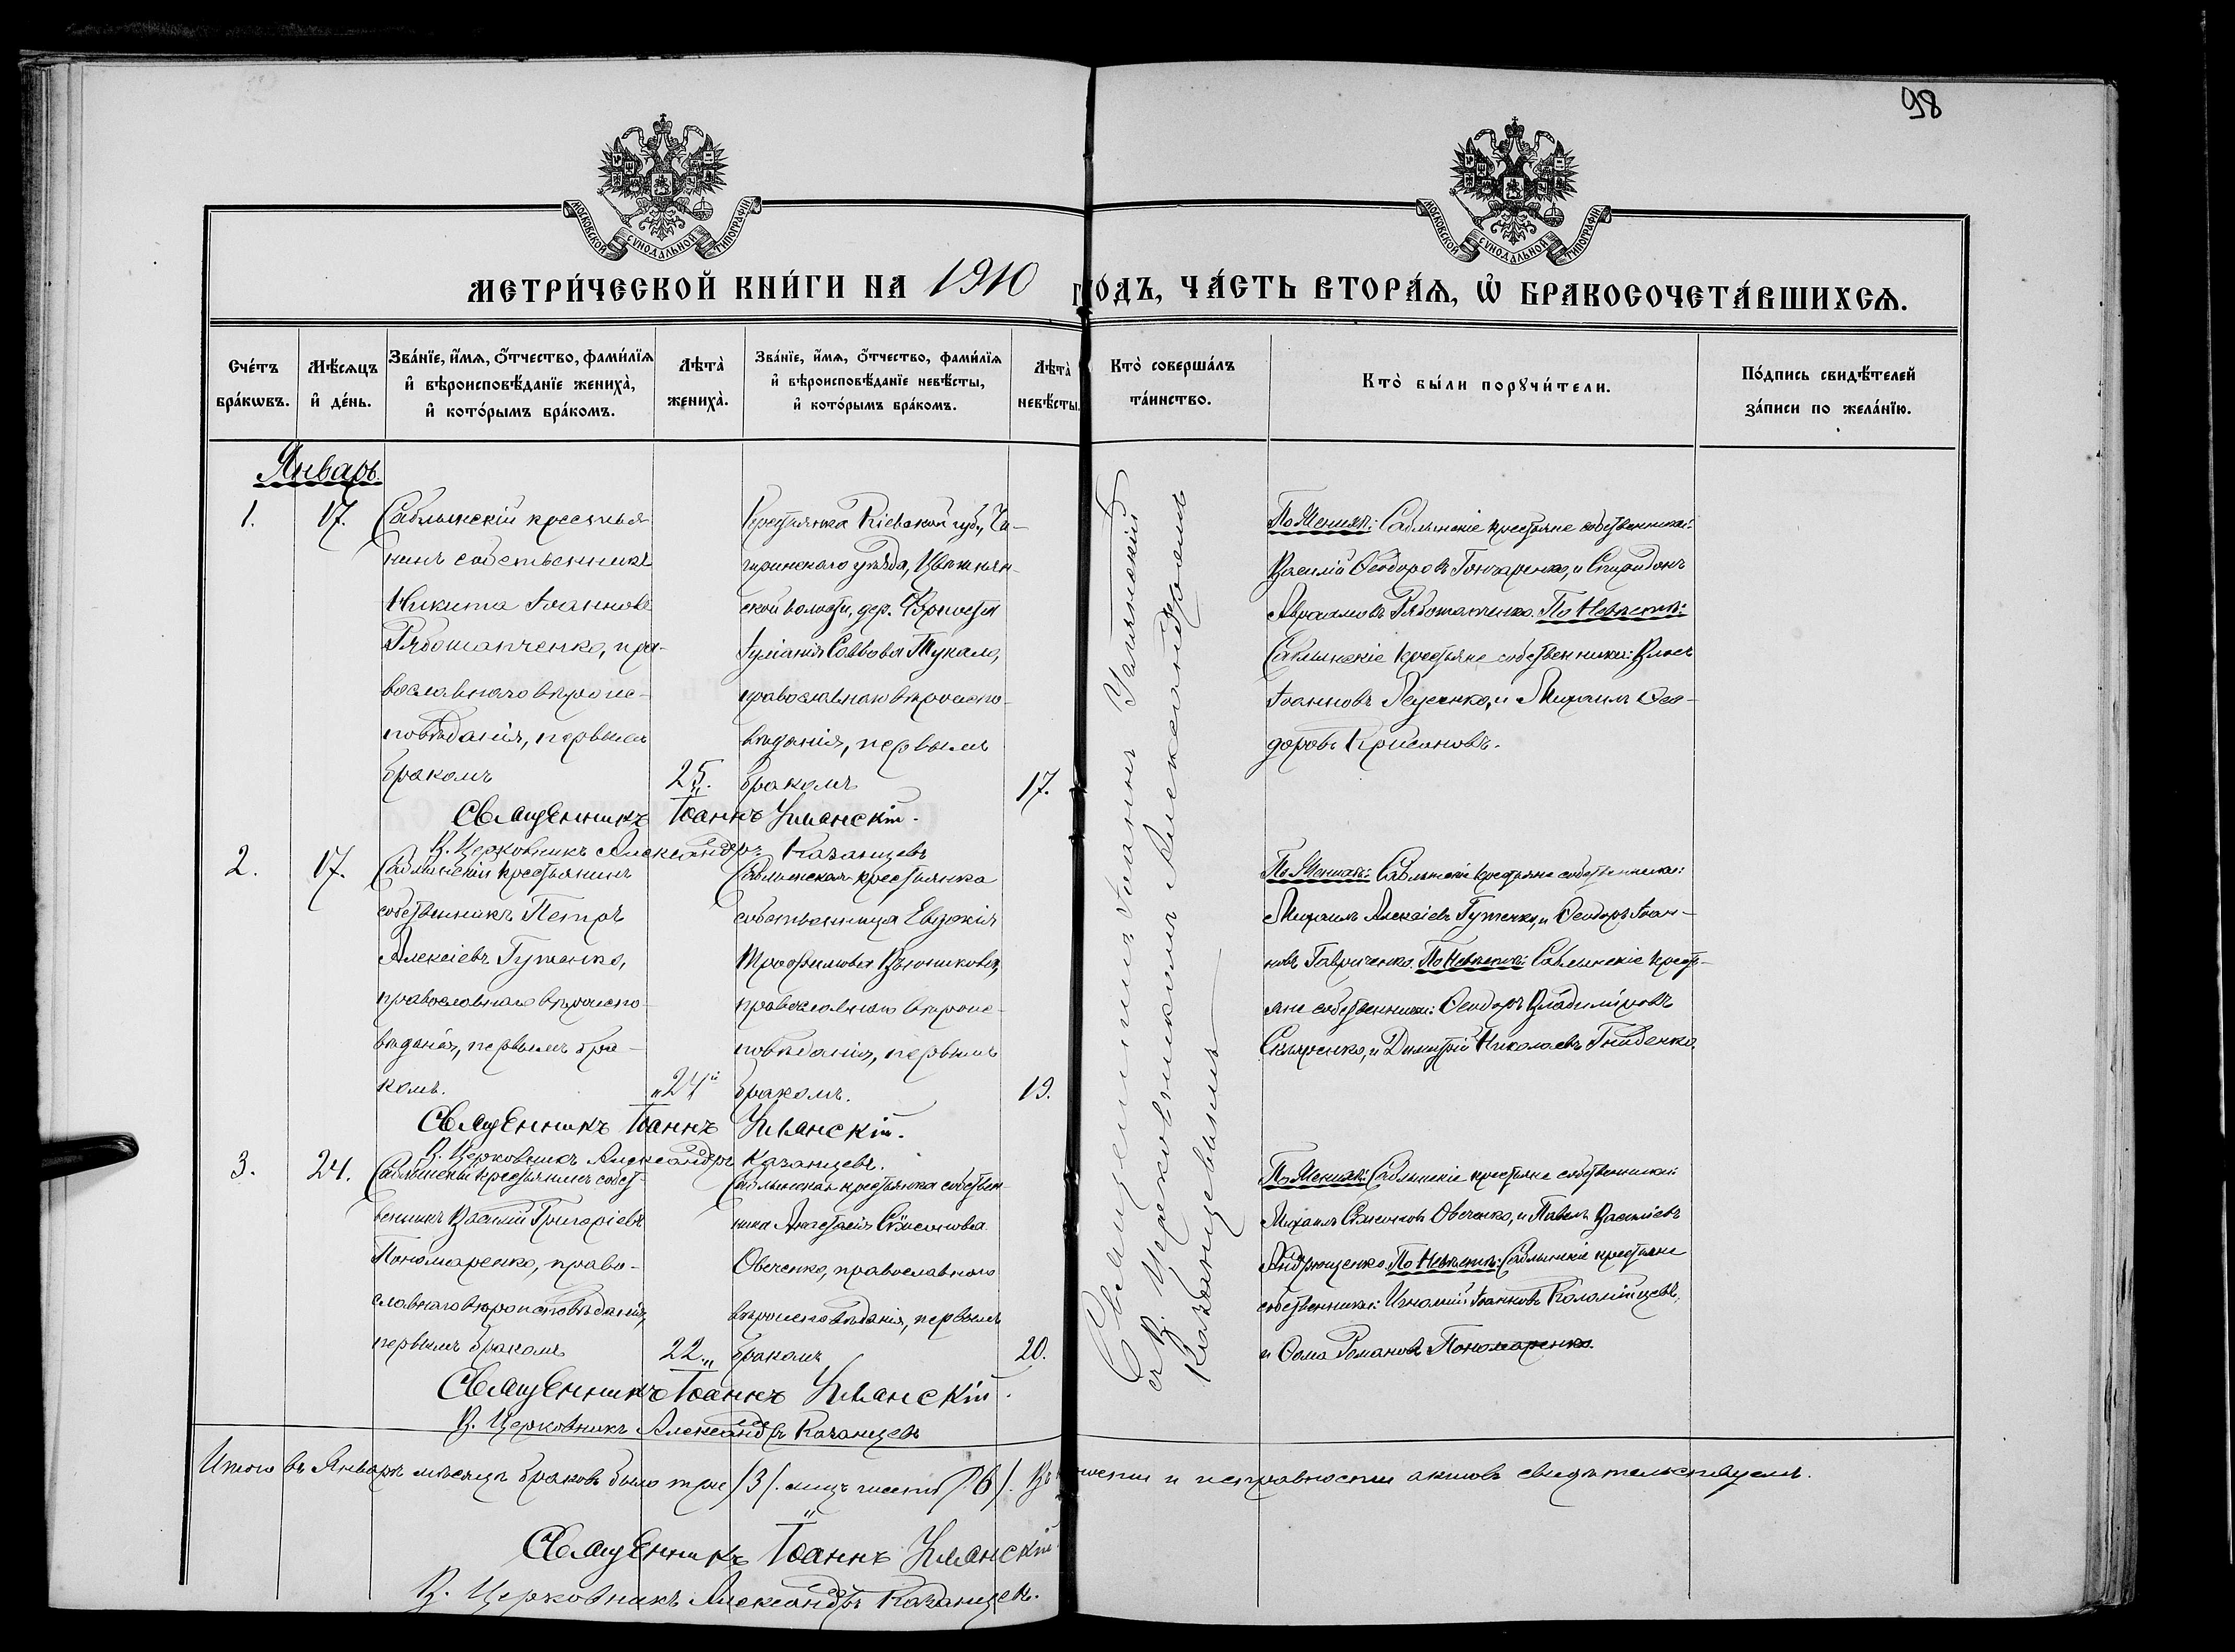 98
МОСКОВСКОЙ СУНОДАЛЬНОЙ ТИПОГРАФІИ
МОСКОВСКОЙ СУНОДАЛЬНОЙ ТИПОГРАФІИ
МЕТРИ́ЧЕСКОЙ КНИ́ГИ НА 1910 ГО́ДЪ, ЧА́СТЬ ВТОРА́Ѧ, Ѡ҆ БРАКОСОЧЕТА́ВШИХСѦ.
Сче́тъ бра́кѡвъ.
Мѣ́сѧцъ и҆ де́нь.
Зва́нїе, и҆́мѧ, ѻ҆́тчество, фами́лїѧ
и҆ вѣроисповѣ́данїе женихà,
и҆ кото́рымъ бра́комъ.
Лѣтà женихà.
Зва́нїе, и҆́мѧ, ѻ҆́тчество, фами́лїѧ
и҆ вѣроисповѣ́данїе невѣ́сты,
и҆ кото́рымъ бра́комъ.
Лѣтà невѣ́сты.
Ктò соверша́лъ та́инство.
Ктò бы́ли порꙋчи́тели.
По́дпись свидѣ́телей за́писи по жела́нїю.
Январь.
1.
17.
Саблинскій крестья-
нинъ собственникъ
Никита Іоанновъ
Рябошапченко, пра-
вославнаго вѣроис-
повѣданія, первымъ
бракомъ
25.
Крестьянка Кіевской губ., Чи-
гиринскаго уѣзда,
ской волости, дер.
Іуліанія Саввова Тукало,
православнаго вѣроиспо-
вѣданія, первымъ
бракомъ
17.
Священникъ Іоаннъ Уманскій.
В. Церковникъ Александръ Казанцевъ
По Женихѣ: Саблинскіе крестьяне собственники:
Василій Ѳеодоровъ Гончаренко, и Спиридонъ
Авраамовъ Рябошапченко. По Невѣстѣ:
Саблинскіе крестьяне собственники:
Іоанновъ и Михаилъ Ѳео-
доровъ
2.
17.
Саблинскій крестьянинъ
собственникъ Петръ
Алексіевъ Гутенко,
православнаго вѣроиспо-
вѣданія, первымъ бра-
комъ.
24
Саблинская крестьянка
собственница Евдокія
Трофимова Вьюникова,
православнаго вѣроис-
повѣданія, первымъ
бракомъ.
19.
Священникъ Іоаннъ Уманскій.
В. Церковникъ Александръ Казанцевъ.
По Женихѣ: Саблинскіе крестьяне собственники:
Михаилъ Алексіевъ Гутенко, и Ѳеодоръ Іоан-
новъ Гавриченко. По Невѣстѣ: Саблинскіе кресть-
яне собственники: Ѳеодоръ Владиміровъ
Скляренко, и Димитрій Николаевъ Гниденко.
3.
24.
Саблинскій крестьянинъ собст-
венникъ Василій Григоріевъ
Пономаренко, право-
славнаго вѣроисповѣданія,
первымъ бракомъ
22
Саблинская крестьянка собствен-
ника Анастасія Сѵмеонова
Овченко, православнаго
вѣроисповѣданія, первымъ
бракомъ
20.
Священникъ Іоаннъ Уманскій.
В. Церковникъ Александръ Казанцевъ
По Женихѣ: Саблинскіе крестьяне собственники:
Михаилъ Сѵмеоновъ Овченко, и Павелъ Василіевъ
Андрющенко. По Невѣстѣ: Саблинскіе крестьяне
собственники: Іоанновъ Коломійцевъ,
и Ѳома Романовъ Пономаренко.
Священникъ Іоаннъ Уманскій
съ В. Церковникомъ Александромъ
Казанцевымъ
Итого въ Январѣ мѣсяцѣ браковъ было три /3/. лицъ шесть /6/. Въ и исправности актовъ свидѣтельствуемъ.
Священникъ Іоаннъ Уманскій
В. Церковникъ Александръ Казанцевъ.